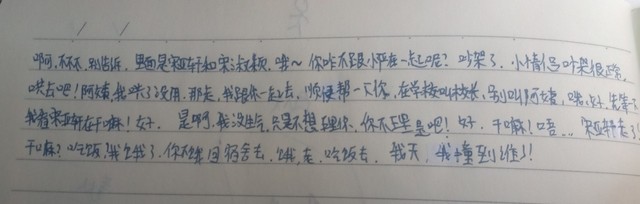 啊，不不，别告诉，里面是宋亚轩和宋淑颖，哦～你咋不跟小严在一起呢？吵架了，小情侣吵架很正常，
哄去吧！阿姨，我哄了没用，那走，我跟你一起去，顺便帮一下你，在学校叫校长，别叫阿姨，哦，好，先等一下
我看宋亚轩在干嘛！好，是啊，我没生气，只是不想理你，你不理是吧！好，干嘛！唔…宋亚轩走了，
干嘛？吃饭！我饿了，你不饿回宿舍去，饿，走，吃饭去，我天，我撞到谁了！